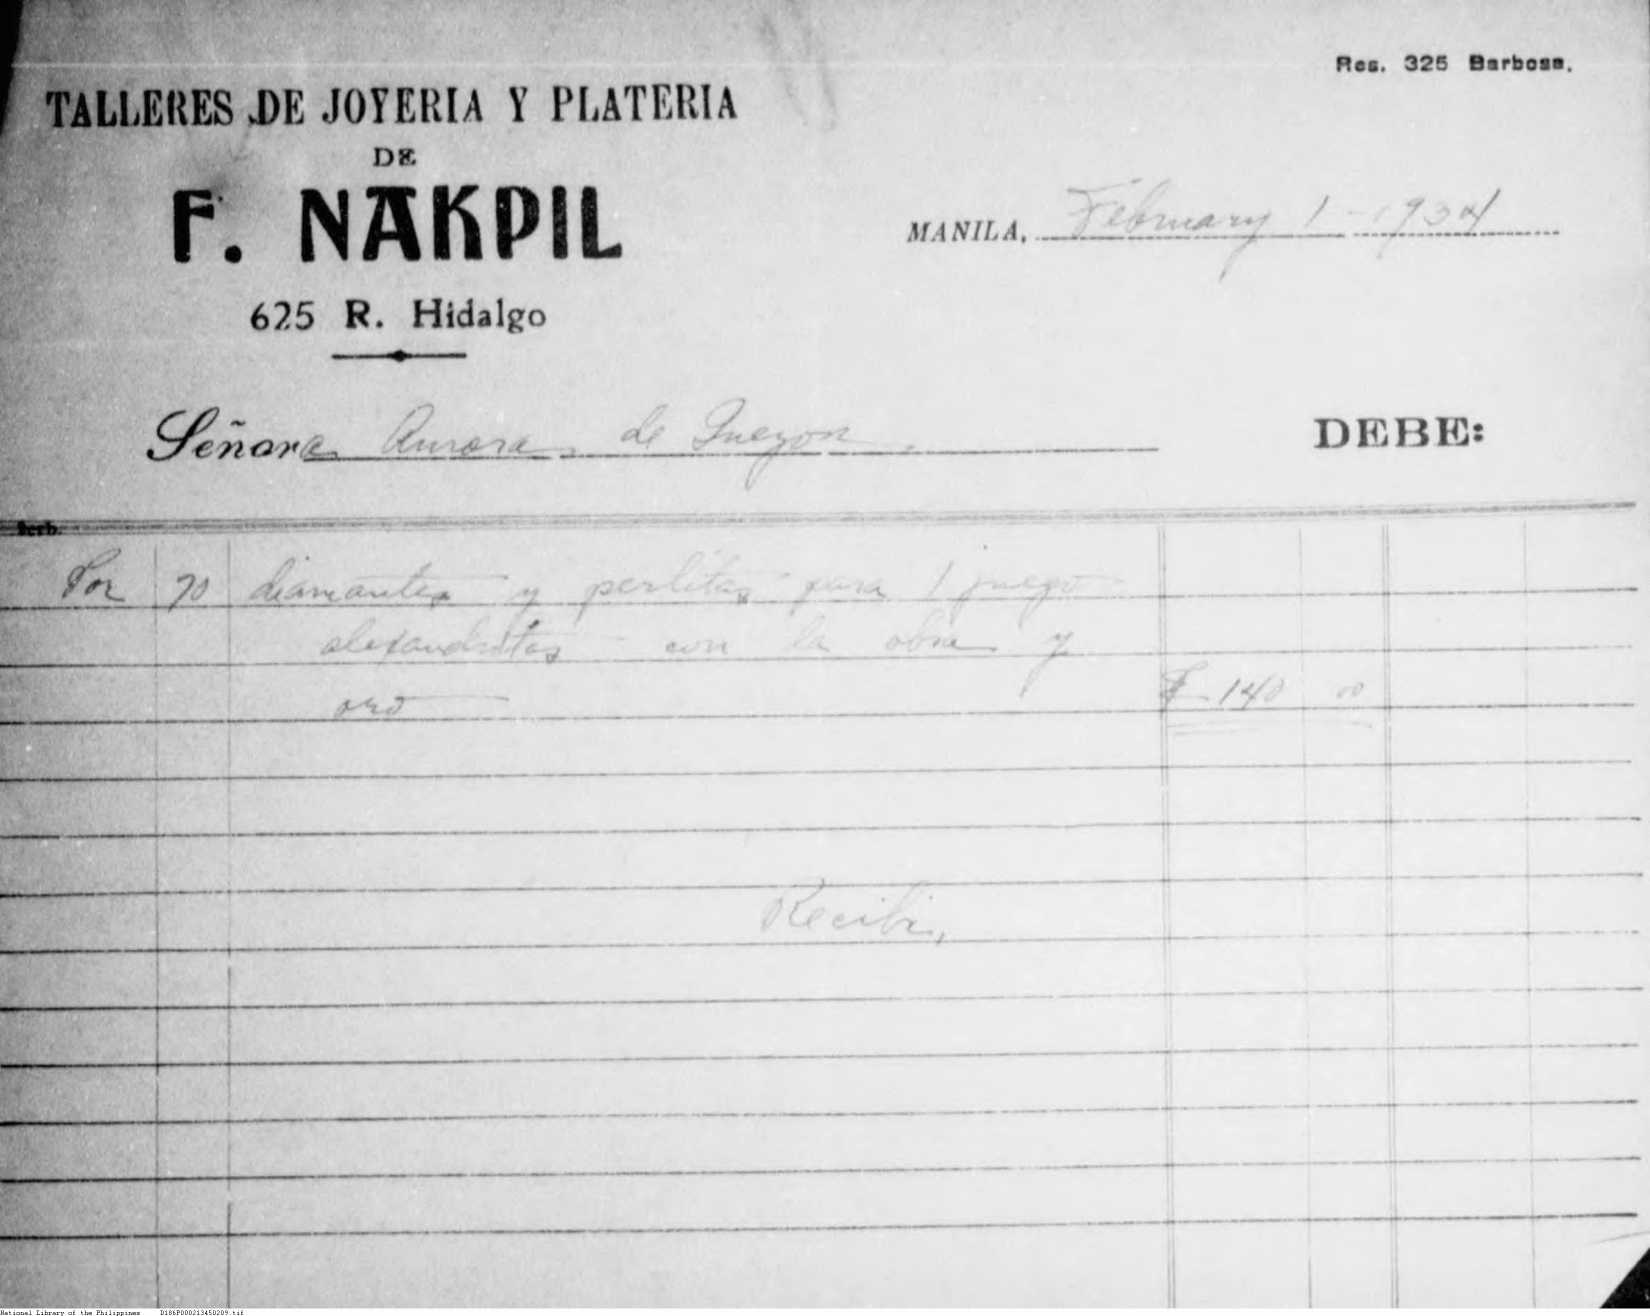 Res. 325 Barbosa.
TALLERES DE JOYERIA Y PLATERIA
DE
F. NAKPIL
625 R. Hidalgo
MANILA, February 1 - 1934
Señora Aurora de Quezon.
DEBE:
Por 70 diamantes y perlitas para 1 juego
alexandritas con la obra y
oro ₱ 140 00
Recibi,
National Library of the Philippines D186P000213450209.tif